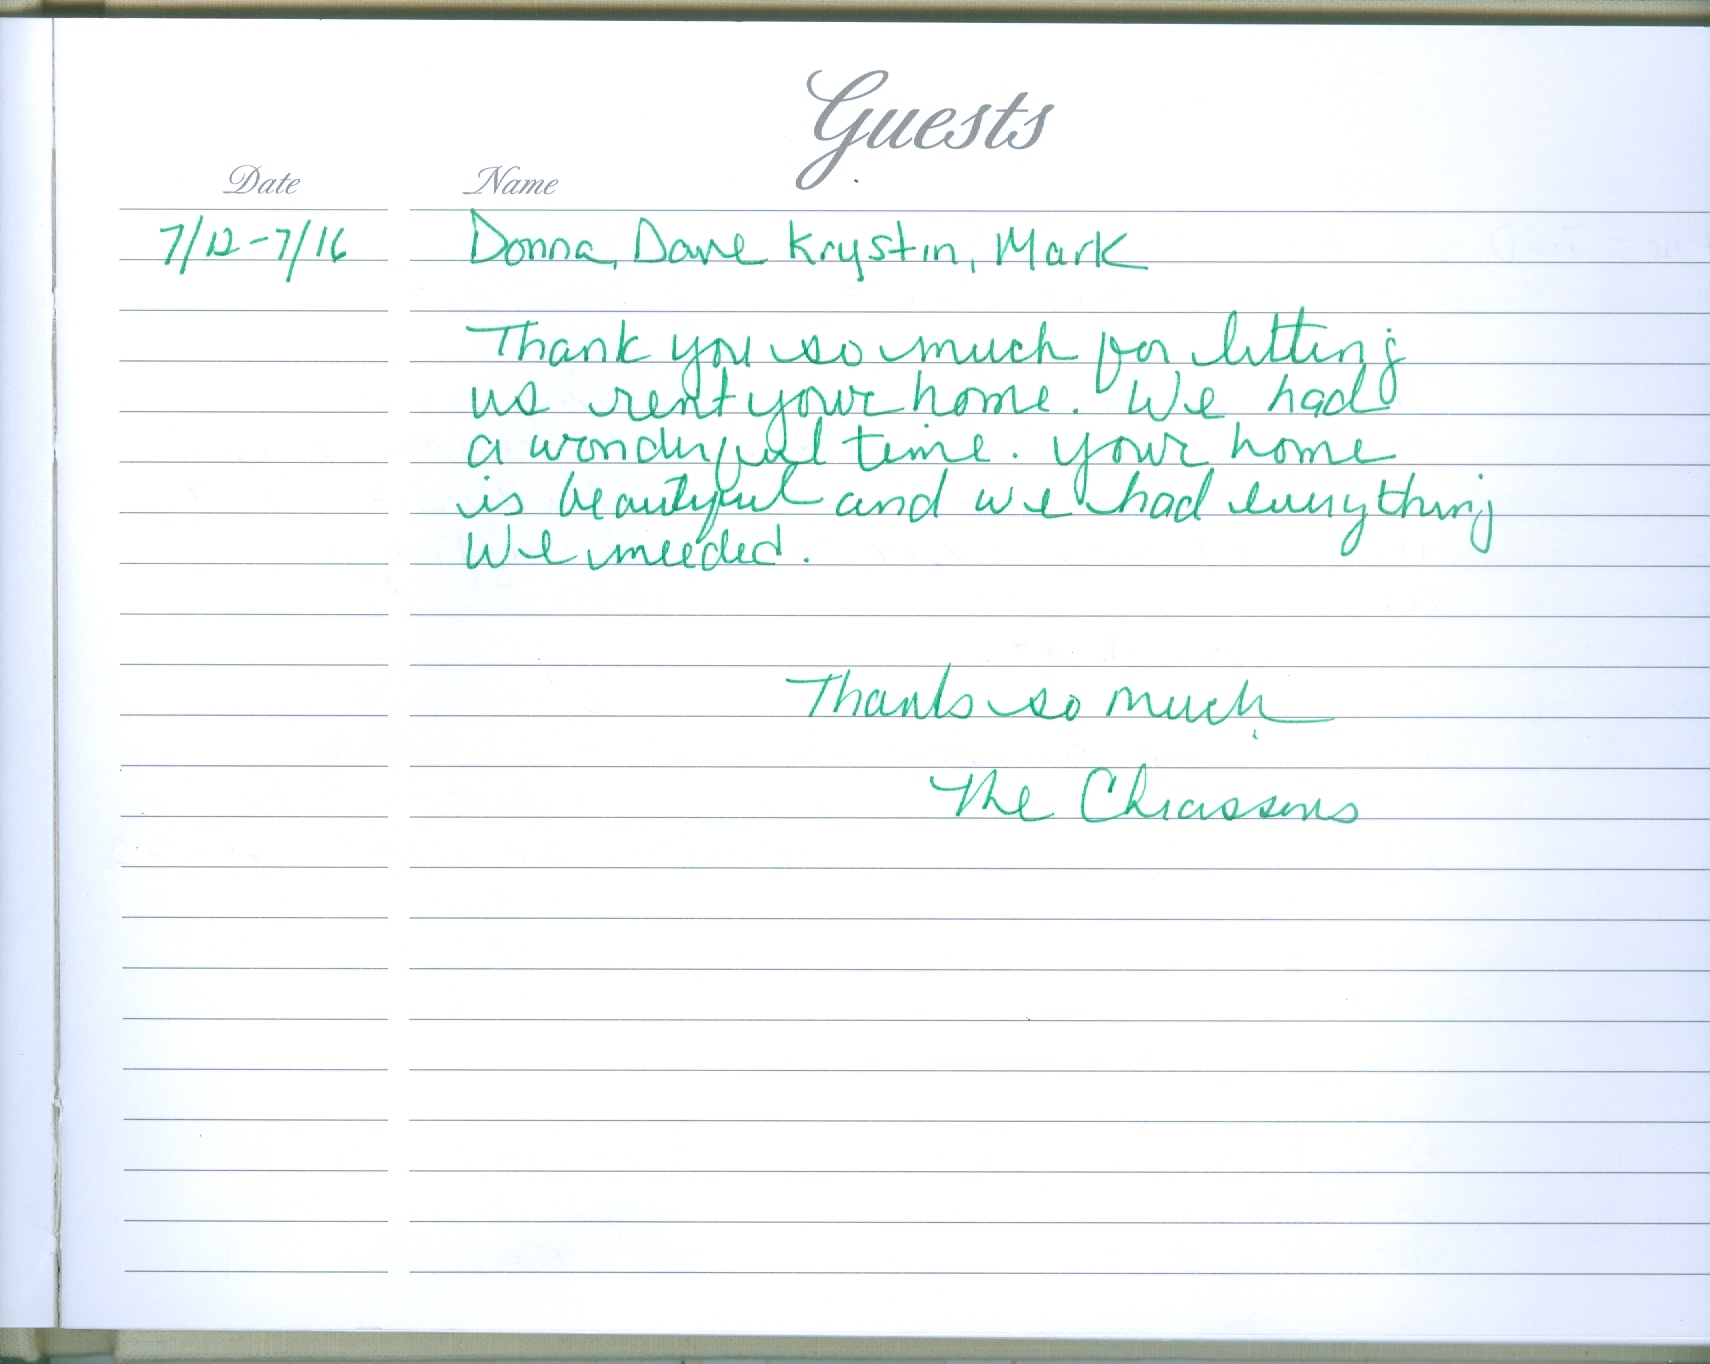 Guests
Date Name
7/12-7/16 Donna, Dave Krystin, Mark
Thank you so much for letting
us rent your home. We had
a wonderful time. Your home
is beautiful and we had everything
we needed.
Thanks so much
The Chiassons